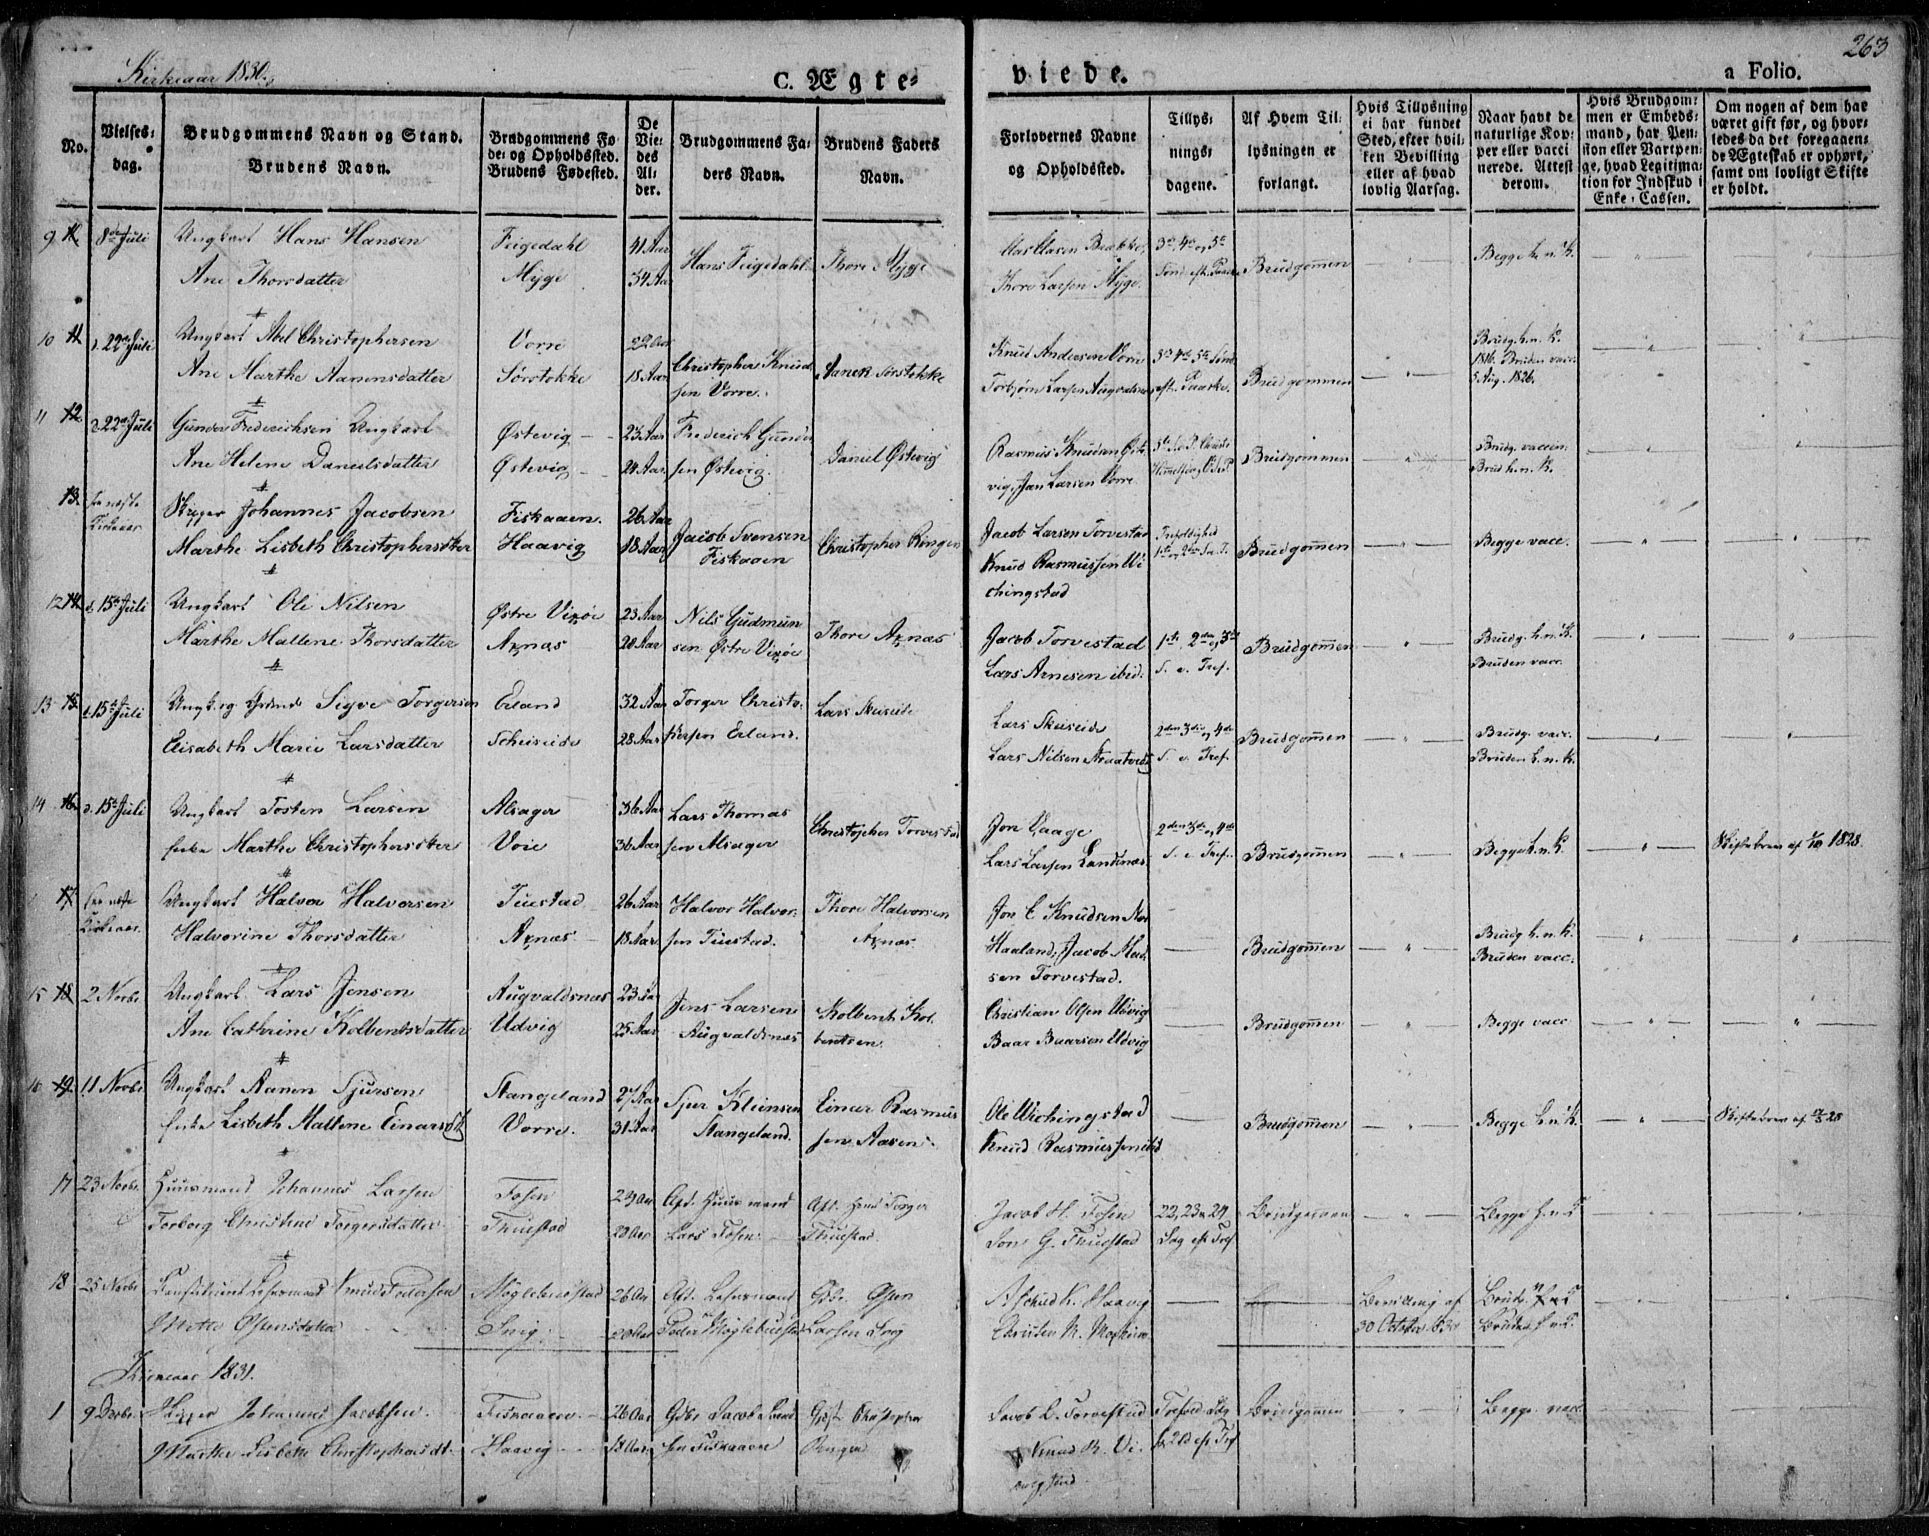 Kirkeaar 1830.
C. Ægte-
viede.
a Folio.
263
No.
Vielses-
dag.
Brudgommens Navn og Stand.
Brudens Navn.
Brudgommens Fø-
de- og Opholdssted.
Brudens Fødested.
De
Vie-
des
Al-
der.
Brudgommens Fa-
ders Navn.
Brudens Faders
Navn.
Forlovernes Navne
og Opholdssted.
Tillys-
nings-
dagene.
Af Hvem Til-
lysningen er
forlangt.
Hvis Tillysning
ei har fundet
Sted, efter hvil-
ken Bevilling
eller af hvad
lovlig Aarsag.
Naar havt de
naturlige Kop-
per eller vacci
nerede. Attest
derom.
Hvis Brudgom-
men er Embeds-
mand, har Pen-
sion eller Vartpen-
ge, hvad Legitima-
tion for Indskud i
Enke-Cassen.
Om nogen af dem har
været gift før, og hvor-
ledes da det foregaaen-
de Ægteskab er ophørt,
samt om lovligt Skifte
er holdt.
9 10. 8de Juli
Ungkarl Hans Hansen
Ane Thorsdatter
Feigedahl
Myge
41 Aar
34 Aar
Hans Feigedahl
Thore Myge
Thore Larsen Myge
3die, 4de og 5te
Brudgommen
Begge h. n. K.
10 11 d. 22de Juli
Ungkarl Abel Christophersen
Ane Marthe Aanensdatter
Vorre
Sørstokke
22 Aar
18 Aar
Christopher Knud
sen Vorre.
Aanen Sørstokke
Knud Andersen Vorre
Torbjørn Larsen Augvaldsnes
3die 4de 5te Sønd.
eft. Paaske.
Brudgommen
Brudg. h. n. K.
1816. Bruden vacc.
5 Aug. 1826.
11 12. d. 22de Juli
Gunder Frederichsen Ungkarl
Ane Helene Danielsdatter
Østevig
Østevig
23 Aar
24 Aar
Frederich Gunder
sen Østevig.
Daniel Østevig
Rasmus Knudsen Øste
vig, Jan Larsen Vorre
Brudgommen
Brudg. vaccin.
Brud h. n. K.
13. see næste
Kirkeaar
Skipper Johannes Jacobsen
Marthe Lisbeth Christophersdtter
Fiskaaen.
Haavig
26 Aar
18 Aar
Jacob Svensen
Fiskaaen
Christopher Ringen
Jacob Larsen Torvestad
Knud Rasmussen Vi
chingstad
Trefoldighed
Brudgommen
Begge vacc.
12 14. d. 15de Juli
Ungkarl Ole Nilsen
Marthe Mallene Thorsdatter
Østre Vixøe
Axnæs
23 Aar
20 Aar
Nils Gudmun
sen Østre Vixøe
Thore Axnæs
Jacob Torvestad
Lars Arnesen ibid.
1ste, 2den og 3die
S. e. Tref.
Brudgommen
Brudg. h. n. K.
Bruden vacc.
13 15. d. 15de Juli
Sigve Torgersen
Elisabeth Marie Larsdatter
Erland
Scheiseide
32 Aar
28 Aar
Torger Christo-
phersen Erland.
Lars Skeiseide
Lars Skeiseide
Lars Nilsen
2den 3die og 4de
S. e. Tref.
Brudgommen
Brudg. vacc.
Bruden h. n. K.
14 16. d. 15de Juli
Ungkarl Tosten Larsen
Enke Marthe Christophersdtter
Alsager
Voie
36 Aar
36 Aar
Lars Thomas
sen Alsager
Christopher Torvestad
Jon Vaage
Lars Larsen Landnæs
2den 3die og 4de
S. e. Tref.
Brudgommen
Begge h. n. K.
1828.
17. see næste
Kirkeaar.
Ungkarl Halvor Halvorsen
Halvorine Thorsdatter
Tuestad
Axnæs
26 Aar
18 Aar
Halvor Halvor-
sen Tuestad.
Thore Halvorsen
Axnæs
Jon C Knudsen Nor
Haaland, Jacob Mad
sen Torvestad.
Brudgommen
Brudg h. n. K.
Bruden vacc.
15 18 2 Novbr.
Ungkarl Lars Jensen
Ane Cathrine Kolbentsdatter
Augvaldsnæs
Udvig
23 Aar
25 Aar
Jens Larsen
Augvaldsnæs
Kolbent Kol
bentsen.
Christian Olsen Udvig
Baar Baarsen Udvig
Brudgommen
Begge vacc
16 19. 11 Novbr.
Ungkarl Aanen Sjursen
Enke Lisbeth Mallene Einarsdtr
Stangeland
Vorre.
27 Aar
31 Aar
Stangeland.
Einar Rasmus
sen Aasen.
Ole Wichingstad
Knud Rasmussen ibid
Brudgommen
Begge h. n. K.
17 23 Novbr.
Huusmand Johannes Larsen
Torborg Christine Torgersdatter
Fosen
Thuestad
29 Aar
20 Aar
Afd. Huusmand
Lars Fosen
Thuestad.
Jacob H. Fosen
Jon G. Thuestad
22, 23 & 24
Dag eft Tref
Brudgommen
Begge h. n. K
18 25 Novbr.
Constitueret Lehnsmand Knud Pedersen
Mette Østensdatter
Møglebuestad
26 Aar
20 Aar
Afd. Lehnsmand
Peder Møglebuestad
Gbr. Østen
Larsen
Aschild K. Haavig
Bevilling af
30 October 1830
Kirkeaar 1831.
1 9 Decbr.
Skipper Johannes Jacobsen
Marthe Lisbeth Christophersdt.
Fiskaaen
Haavig
26 Aar
18 Aar
Gbr Jacob Svend
sen Fiskaaen
Christopher
Ringen
Jacob L. Torvestad
Knud R. Vi-
chingstad
Brudgommen
Begge vacc.